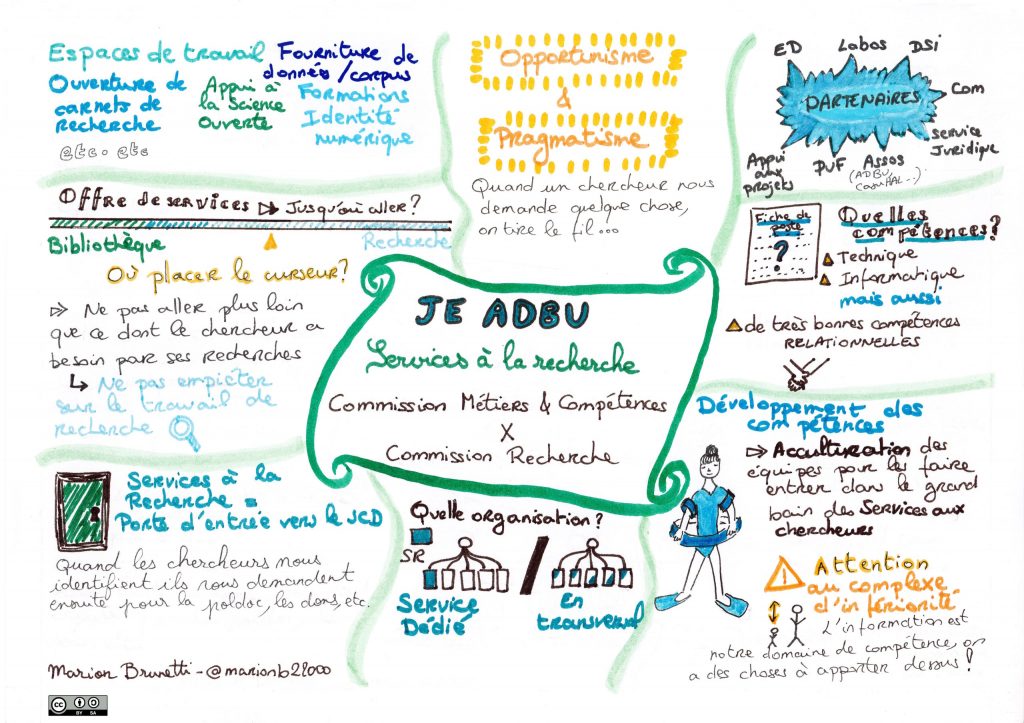 Espaces de travail
Fourniture de
données/corpus
Ouverture de
carnets de
recherche
Appui à
la Science
Ouverte
Formations
Identité
numérique
etc. etc
Offre de services ▷ Jusqu'où aller?
Bibliothèque
Recherche
Où placer le curseur?
Ne pas aller plus loin
que ce dont le chercheur a
besoin par ses recherches
Ne pas empiéter
sur le travail de
recherche
Services à la
Recherche =
Porte d'entrée vers le SCD
Quand les chercheurs nous
identifient ils nous demandent
ensuite pour la poldoc, les dons, etc.
Marion Brunetti - @marionb22000
CC BY SA
Opportunisme
&
Pragmatisme
Quand un chercheur nous
demande quelque chose,
on tire le fil...
JE ADBU
Services à la recherche
Commission Métiers & Compétences
X
Commission Recherche
Quelle organisation?
SR
Service
Dédié
/
En
transversal
ED
Labos
DSI
PARTENAIRES
Com
Service
Juridique
Appui
aux
projets
PUF
Assos
(ADBU,
CasuHAL...)
Fiche de
poste
?
Quelles
compétences?
Technique
Informatique
mais aussi
de très bonnes compétences
RELATIONNELLES
Développement des
compétences
Acculturation des
équipes pour les faire
entrer dans le grand
bain des Services aux
chercheurs
! Attention
au complexe
d'infériorité
L'information est
notre domaine de compétence, on
a des choses à apporter dessus!